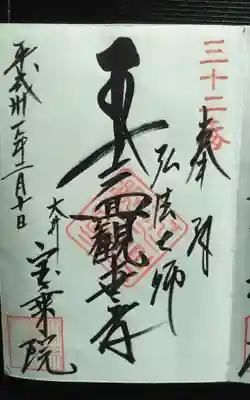 三十二番
奉拝
弘法大師
十一面観世音
平成卅一年 月十日
大井
宝乗院